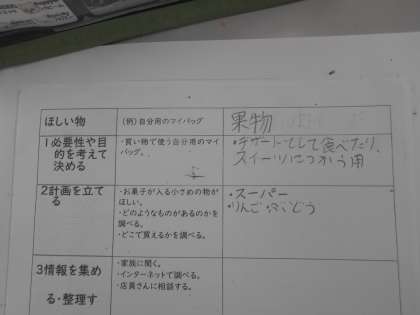 ほしい物
(例)自分用のマイバッグ
果物
1必要性や目
的を考えて
決める
・買い物で使う自分用のマイ
バッグ。
・デザートとして食べたり、
スイーツにつかう用
2計画を立て
る
・お菓子が入る小さめの物が
ほしい。
・どのようなものがあるのかを
調べる。
・どこで買えるかを調べる。
・スーパー
・りんご・ぶどう
3情報を集め
る・整理す
・家族に聞く。
・インターネットで調べる。
・店員さんに相談する。